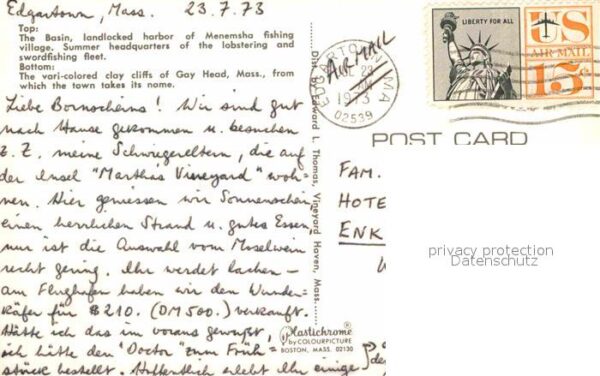 Edgartown, Mass. 23.7.73
Top:
The Basin, landlocked harbor of Menemsha fishing
village. Summer headquarters of the lobstering and
swordfishing fleet.
Bottom:
The vari-colored clay cliffs of Gay Head, Mass., from
which the town takes its name.
Liebe Bornscheins! Wir sind gut
nach Hause gekommen u. besuchen
z. Z. meine Schwiegereltern, die auf
der Insel "Marthas Vineyard" woh-
nen. Hier geniessen wir Sonnenschein,
einen herrlichen Strand u. gutes Essen,
nur ist die Auswahl vom Moselwein
recht gering. Ihr werdet lachen –
am Flughafen haben wir den Wunder-
käfer für $210. (DM 500.) verkauft.
Hätte ich das im voraus gewußt,
ich hätte den "Doctor" zum Früh=
stück bestellt. Hoffentlich erlebt Ihr einige
Dist. Edward L. Thomas, Vineyard Haven, Mass.
Plastichrome®
by COLOURPICTURE
BOSTON, MASS. 02130
AIR MAIL
EDGARTOWN MA
23
1973
02539
LIBERTY FOR ALL
US
AIR MAIL
15¢
POST CARD
FAM.
HOTE
ENK
privacy protection
Datenschutz